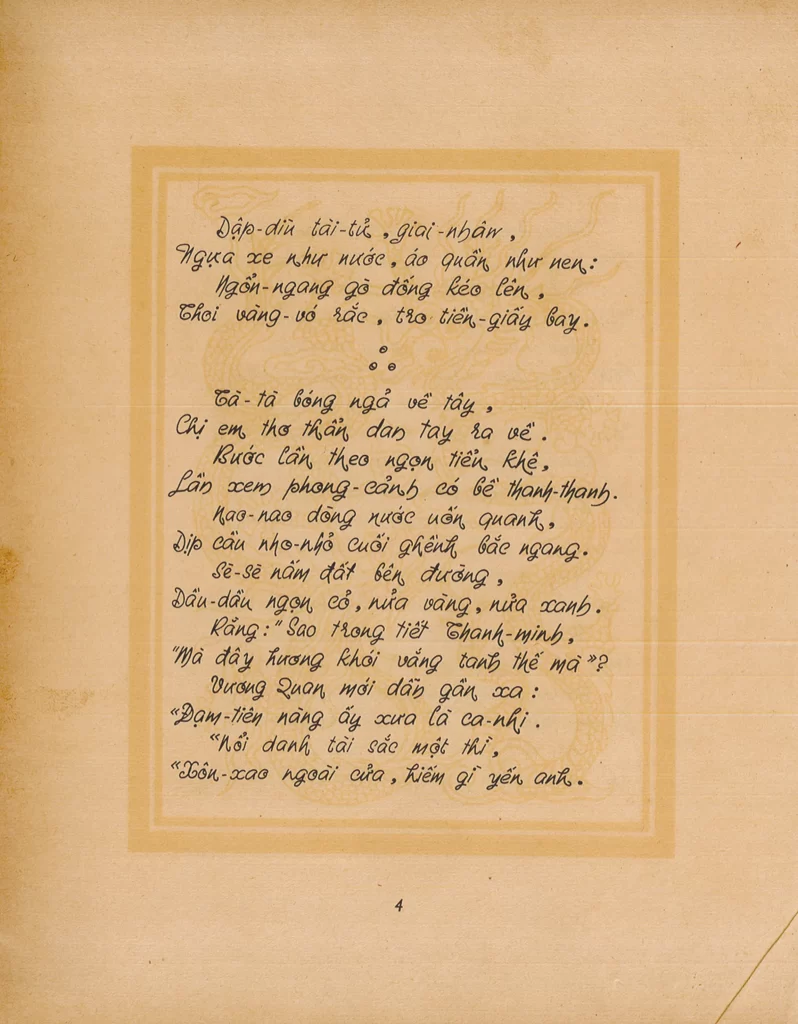 Dập-dìu tài-tử, giai-nhân,
Ngựa xe như nước, áo quần như nen:
Ngổn-ngang gò đống kéo lên,
Thoi vàng-vó rắc, tro tiền-giấy bay.
Tà-tà bóng ngả về tây,
Chị em thơ thẩn dan tay ra về.
Bước lần theo ngọn tiểu khê,
Lần xem phong-cảnh có bề thanh-thanh.
Nao-nao dòng nước uốn quanh,
Dịp cầu nho-nhỏ cuối ghềnh bắc ngang.
Sè-sè nấm đất bên đường,
Dầu-dầu ngọn cỏ, nửa vàng, nửa xanh.
Rằng: "Sao trong tiết Thanh-minh,
"Mà đây hương khói vắng tanh thế mà"?
Vương Quan mới dẫn gần xa:
"Đạm-tiên nàng ấy xưa là ca-nhi.
"Nổi danh tài sắc một thì,
"Xôn-xao ngoài cửa, hiếm gì yến anh.
4